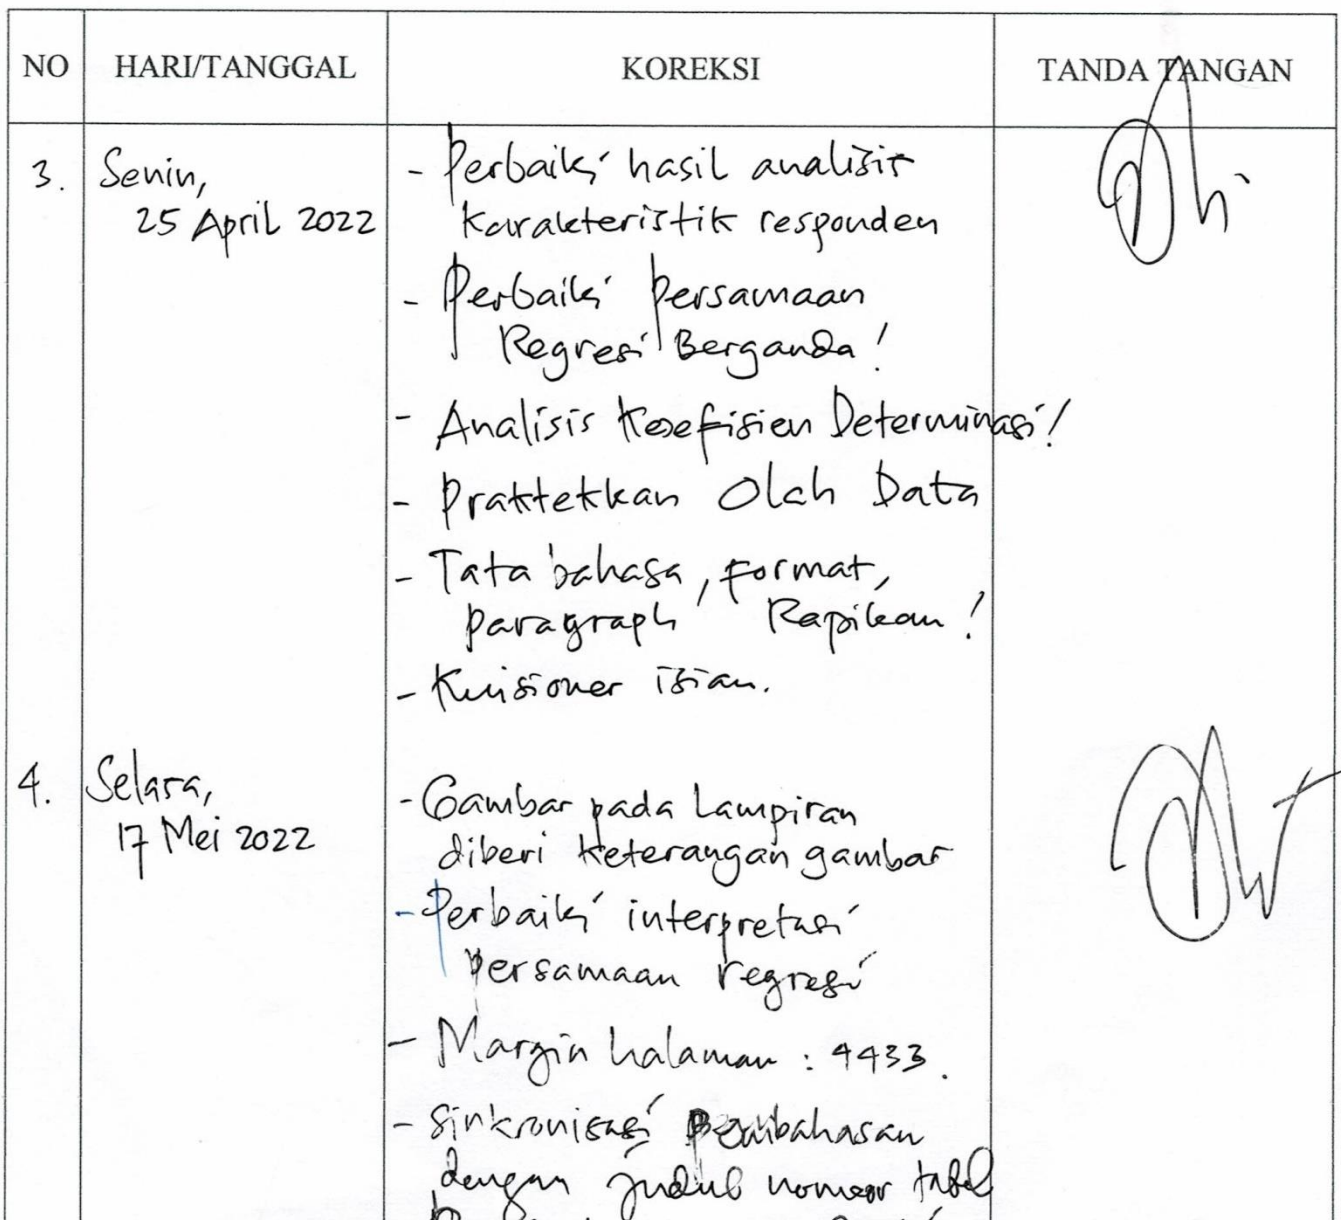 NO HARI/TANGGAL KOREKSI TANDA TANGAN
3. Senin, - Perbaiki hasil analisis
25 April 2022 karakteristik responden
- Perbaiki Persamaan
Regresi Berganda!
- Analisis Koefisien Determinasi!
- Praktekkan Olah Data
- Tata bahasa, format,
paragraph Rapikan!
- Kuisioner isian.
4. Selasa, - Gambar pada Lampiran
17 Mei 2022 diberi keterangan gambar
- Perbaiki interpretasi
persamaan regresi
- Margin halaman : 4433.
- Sinkronisasi Pembahasan
dengan judul nomor tabel